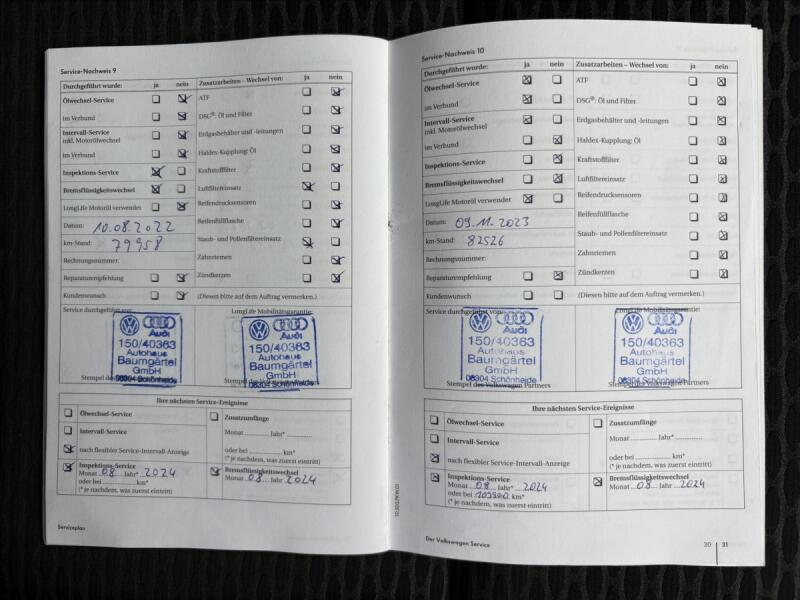 Service-Nachweis 9
Durchgeführt wurde: ja nein Zusatzarbeiten – Wechsel von: ja nein
Ölwechsel-Service
ATF
im Verbund
DSG®: Öl und Filter
Intervall-Service
inkl. Motorölwechsel
Erdgasbehälter und -leitungen
im Verbund
Haldex-Kupplung: Öl
Inspektions-Service
Kraftstofffilter
Bremsflüssigkeitswechsel
Luftfiltereinsatz
LongLife Motoröl verwendet
Reifendrucksensoren
Datum: 10.08.2022
Reifenfüllflasche
km-Stand: 79958
Staub- und Pollenfiltereinsatz
Rechnungsnummer:
Zahnriemen
Reparaturempfehlung
Zündkerzen
Kundenwunsch
(Diesen bitte auf dem Auftrag vermerken.)
Service durchgeführt von:
LongLife Mobilitätsgarantie:
Audi
150/40363
Autohaus
Baumgärtel
GmbH
08304 Schönheide
Audi
150/40363
Autohaus
Baumgärtel
GmbH
08304 Schönheide
Ihre nächsten Service-Ereignisse
Ölwechsel-Service
Zusatzumfänge
Intervall-Service
Monat ............ Jahr* ............
nach flexibler Service-Intervall-Anzeige
oder bei ............ km*
(* je nachdem, was zuerst eintritt)
Inspektions-Service
Monat 08 Jahr* 2024
oder bei ............ km*
(* je nachdem, was zuerst eintritt)
Bremsflüssigkeitswechsel
Monat 08 Jahr 2024
Serviceplan
Service-Nachweis 10
Durchgeführt wurde: ja nein Zusatzarbeiten – Wechsel von: ja nein
Ölwechsel-Service
ATF
im Verbund
DSG®: Öl und Filter
Intervall-Service
inkl. Motorölwechsel
Erdgasbehälter und -leitungen
im Verbund
Haldex-Kupplung: Öl
Inspektions-Service
Kraftstofffilter
Bremsflüssigkeitswechsel
Luftfiltereinsatz
LongLife Motoröl verwendet
Reifendrucksensoren
Datum: 09.11.2023
Reifenfüllflasche
km-Stand: 82526
Staub- und Pollenfiltereinsatz
Rechnungsnummer:
Zahnriemen
Reparaturempfehlung
Zündkerzen
Kundenwunsch
(Diesen bitte auf dem Auftrag vermerken.)
Service durchgeführt von:
LongLife Mobilitätsgarantie:
Audi
150/40363
Autohaus
Baumgärtel
GmbH
08304 Schönheide
Stempel des Volkswagen Partners
Audi
150/40363
Autohaus
Baumgärtel
GmbH
08304 Schönheide
Stempel des Volkswagen Partners
Ihre nächsten Service-Ereignisse
Ölwechsel-Service
Zusatzumfänge
Intervall-Service
Monat ............ Jahr* ............
nach flexibler Service-Intervall-Anzeige
oder bei ............ km*
(* je nachdem, was zuerst eintritt)
Inspektions-Service
Monat 08 Jahr* 2024
oder bei km*
(* je nachdem, was zuerst eintritt)
Bremsflüssigkeitswechsel
Monat 08 Jahr 2024
Der Volkswagen Service
30 31